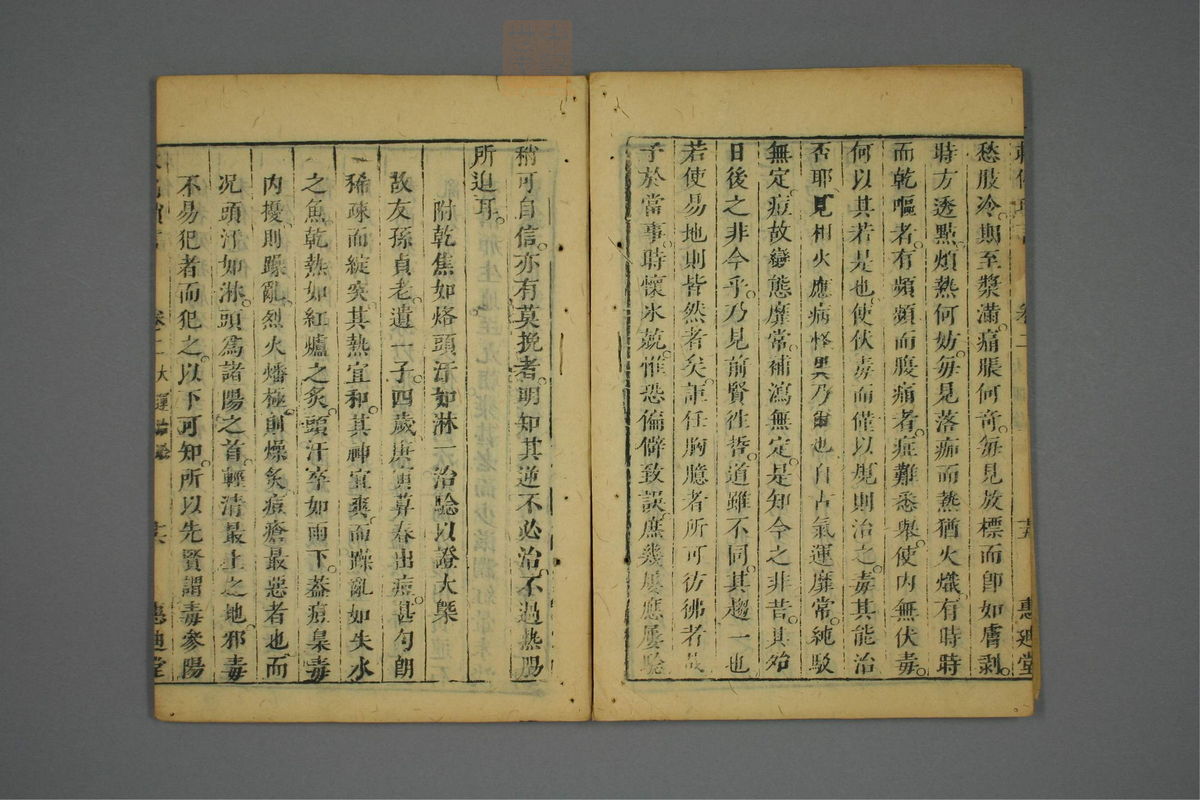 惠廸堂
愁肢冷期至漿滿痛脹何竒每見放標而卽如膚剥
時方透點煩熱何妨每見落痂而熱猶火熾有時時
而乾嘔者有頻頻而腹痛者症難悉舉使内無伏毒
何以其若是也使伏毒而僅以規則治之毒其能治
否耶見相火應病
乃爾也自古氣運靡常純駁
無定痘故變態靡常補瀉無定是知今之非昔其殆
日後之非今乎乃見前賢徃哲道雖不同其趨一也
若使易地則皆然者矣詎任胸臆者所可彷彿者哉
子於當事時懷冰兢惟恐偏僻致誤庶幾屢應屢驗
稍可自信亦有莫挽者明知其逆不必治不過熱腸
所迫耳
附乾焦如烙頭汗如淋一治驗以證大槩
故友孫貞老遺一子四歲庚寅暮春出痘甚勻朗
稀疎而綻突其熱宜和其神宜爽而躁亂如失水
之魚乾熱如紅爐之炙頭汗卒如雨下葢痘臬毒
内擾則躁亂烈火燔極則燥炙痘瘡最惡者也而
况頭汗如淋頭爲諸陽之首輕清最上之地邪毒
不易犯者而犯之以下可知所以先賢謂毒參陽
卷二 大運 共 惠廸堂